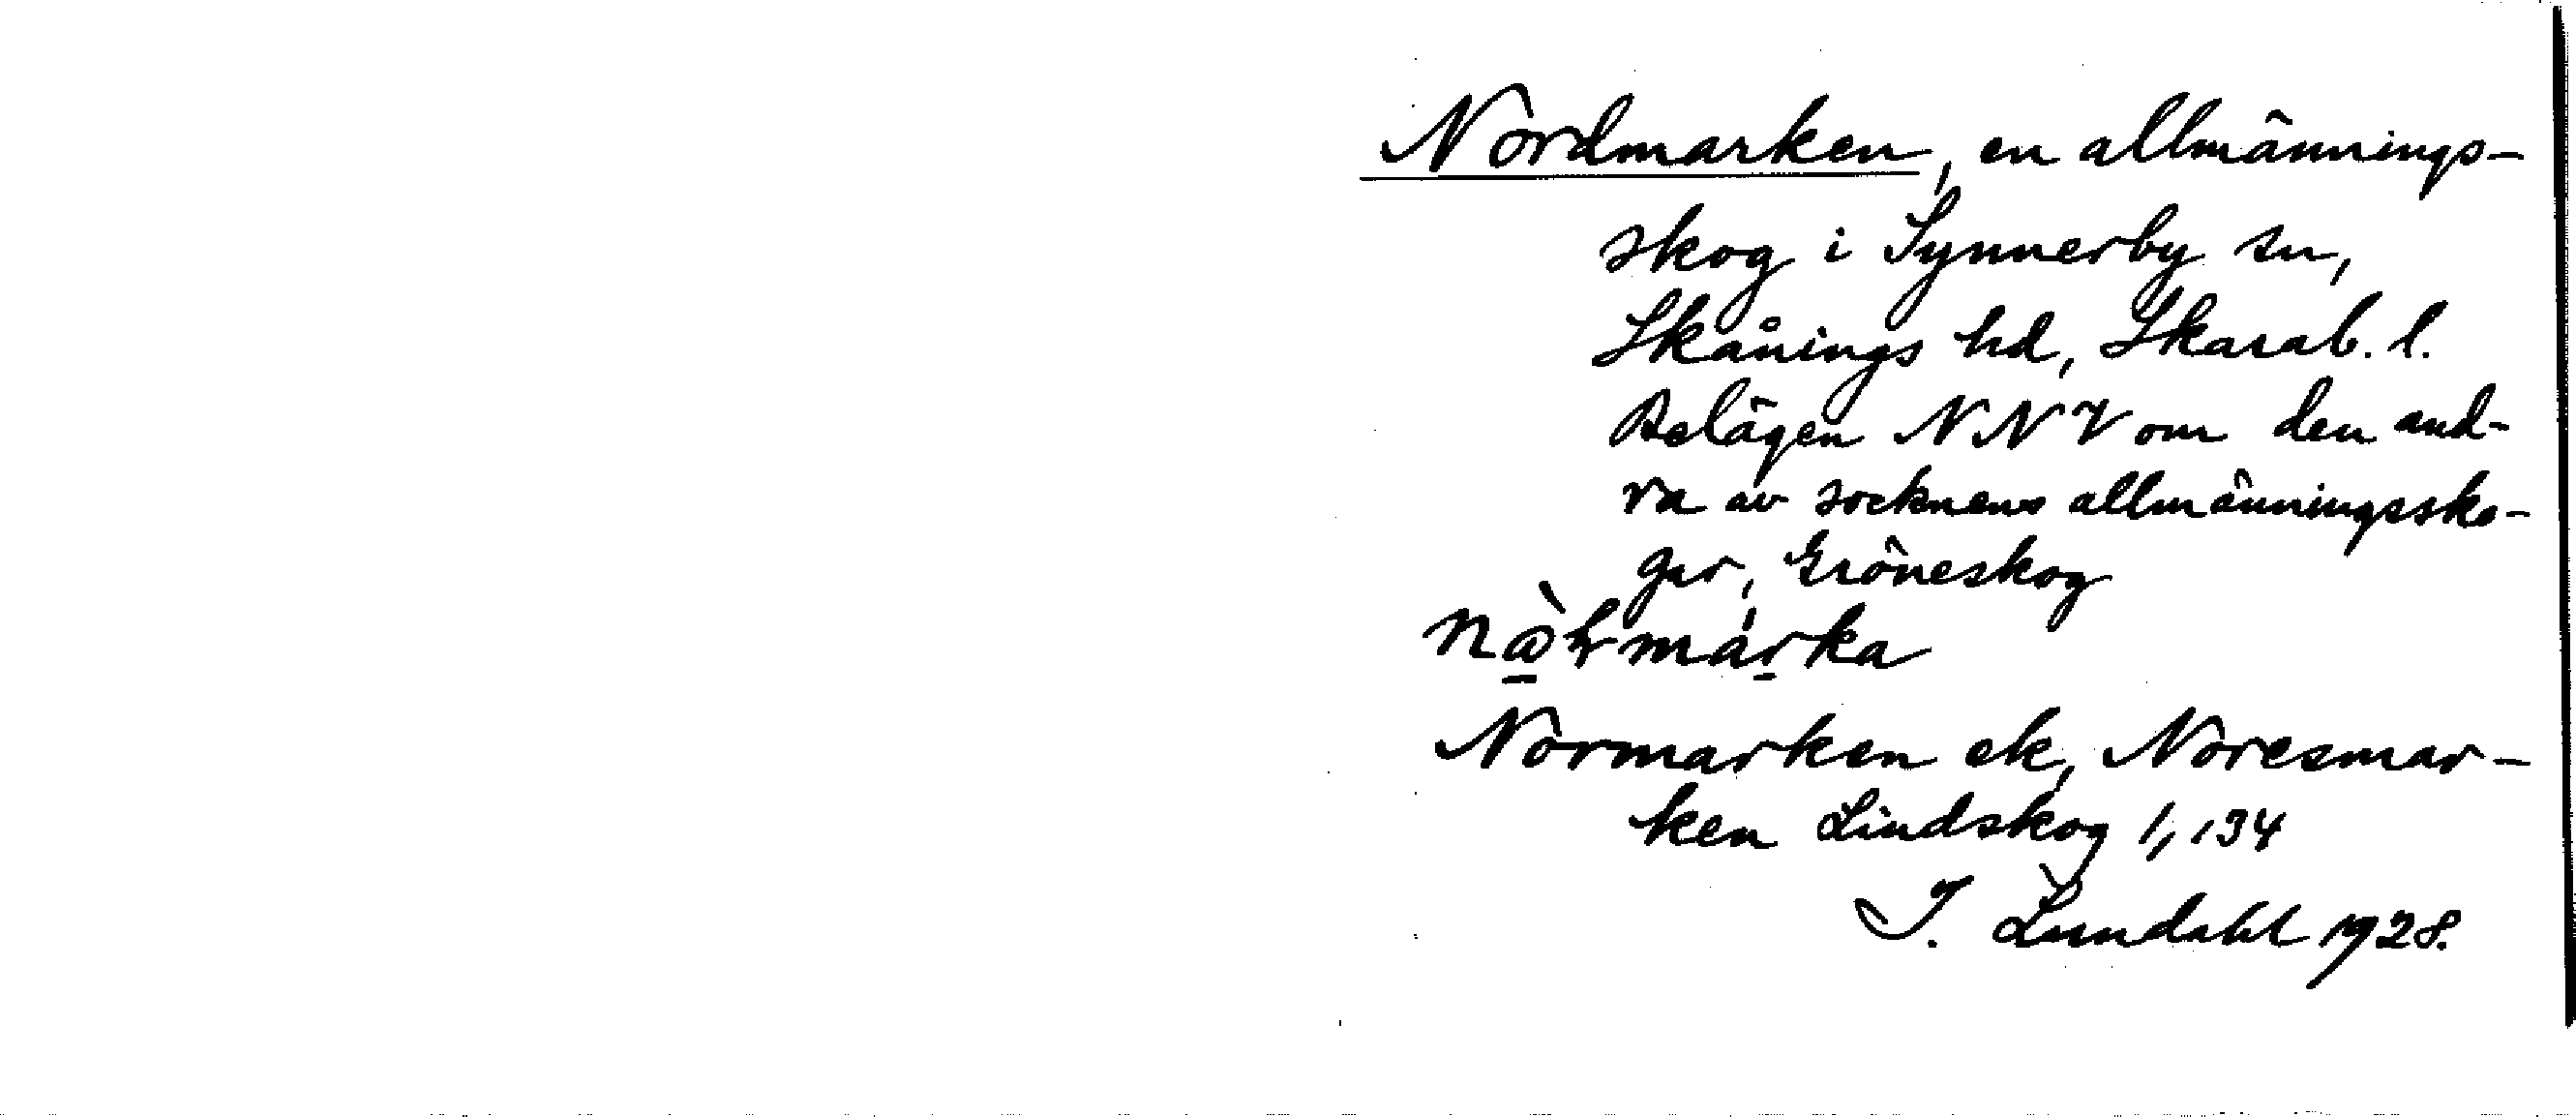 Nordmarken, en allmännings-
skog i Synnerby sn,
Skånings hd, Skarab. l.
Belägen NNV om den and-
ra av socknens allmänningssko-
gar, Gröneskog
Normarken ek, Noresmar-
ken Lindskog 1, 134
I. Lundahl 1928.